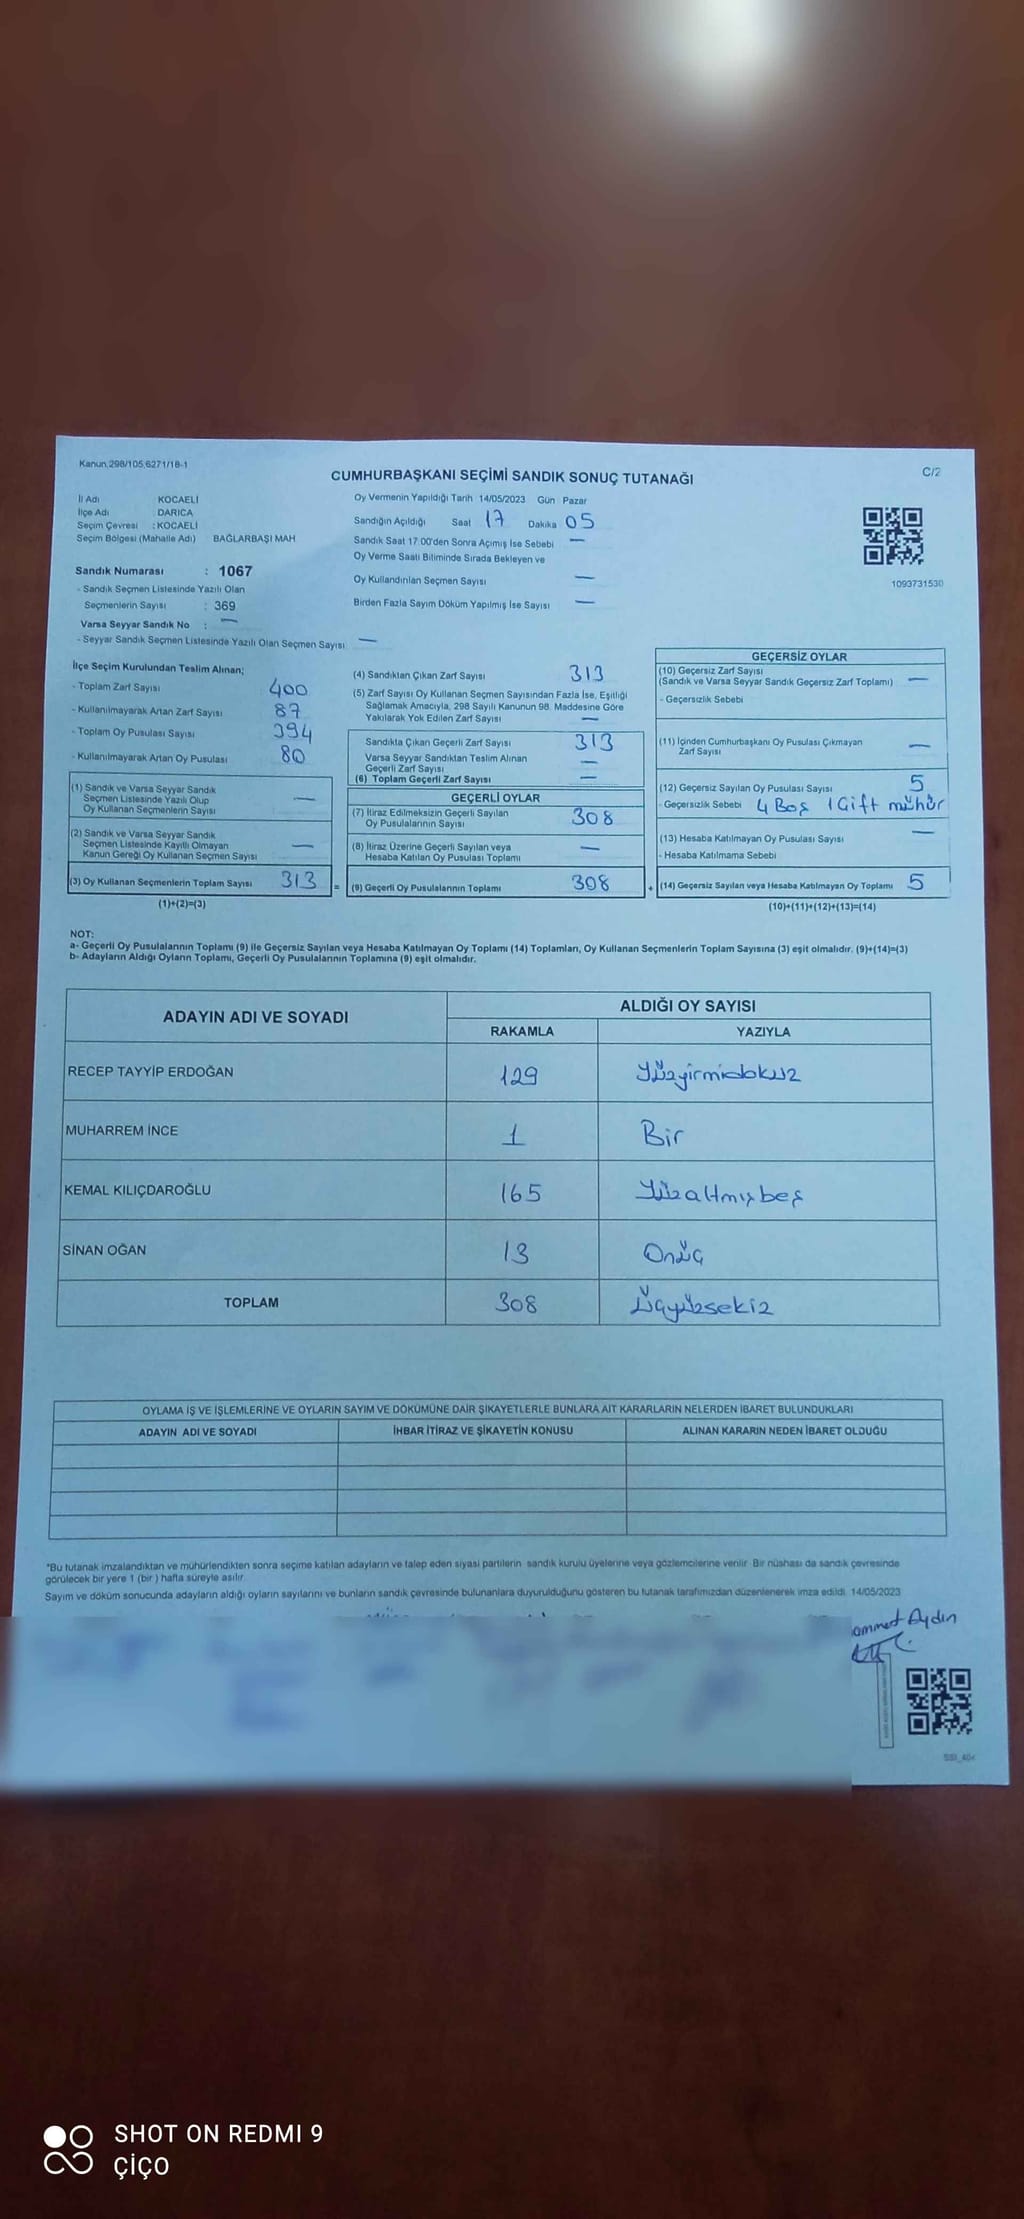 Kanun,298/105,6271/18-1
C/2
CUMHURBAŞKANI SEÇİMİ SANDIK SONUÇ TUTANAĞI
İl Adı KOCAELİ
İlçe Adı DARICA
Seçim Çevresi : KOCAELİ
Seçim Bölgesi (Mahalle Adı) BAĞLARBAŞI MAH
Sandık Numarası : 1067
- Sandık Seçmen Listesinde Yazılı Olan
Seçmenlerin Sayısı : 369
Varsa Seyyar Sandık No : —
- Seyyar Sandık Seçmen Listesinde Yazılı Olan Seçmen Sayısı —
Oy Vermenin Yapıldığı Tarih 14/05/2023 Gün Pazar
Sandığın Açıldığı Saat 17 Dakika 05
Sandık Saat 17:00'den Sonra Açımış İse Sebebi —
Oy Verme Saati Bitiminde Sırada Bekleyen ve
Oy Kullandırılan Seçmen Sayısı —
Birden Fazla Sayım Döküm Yapılmış İse Sayısı —
1093731530
İlçe Seçim Kurulundan Teslim Alınan;
- Toplam Zarf Sayısı 400
- Kullanılmayarak Artan Zarf Sayısı 87
- Toplam Oy Pusulası Sayısı 394
- Kullanılmayarak Artan Oy Pusulası 80
(1) Sandık ve Varsa Seyyar Sandık
Seçmen Listesinde Yazılı Olup
Oy Kullanan Seçmenlerin Sayısı —
(2) Sandık ve Varsa Seyyar Sandık
Seçmen Listesinde Kayıtlı Olmayan
Kanun Gereği Oy Kullanan Seçmen Sayısı —
(3) Oy Kullanan Seçmenlerin Toplam Sayısı 313 =
(1)+(2)=(3)
(4) Sandıktan Çıkan Zarf Sayısı 313
(5) Zarf Sayısı Oy Kullanan Seçmen Sayısından Fazla İse, Eşitliği
Sağlamak Amacıyla, 298 Sayılı Kanunun 98. Maddesine Göre
Yakılarak Yok Edilen Zarf Sayısı —
Sandıkta Çıkan Geçerli Zarf Sayısı 313
Varsa Seyyar Sandıktan Teslim Alınan
Geçerli Zarf Sayısı —
(6) Toplam Geçerli Zarf Sayısı —
GEÇERLİ OYLAR
(7) İtiraz Edilmeksizin Geçerli Sayılan
Oy Pusulalarının Sayısı 308
(8) İtiraz Üzerine Geçerli Sayılan veya
Hesaba Katılan Oy Pusulası Toplamı —
(9) Geçerli Oy Pusulalarının Toplamı 308 +
GEÇERSİZ OYLAR
(10) Geçersiz Zarf Sayısı
(Sandık ve Varsa Seyyar Sandık Geçersiz Zarf Toplamı) —
- Geçersizlik Sebebi
(11) İçinden Cumhurbaşkanı Oy Pusulası Çıkmayan
Zarf Sayısı —
(12) Geçersiz Sayılan Oy Pusulası Sayısı 5
- Geçersizlik Sebebi 4 Boş 1 Çift mühür
(13) Hesaba Katılmayan Oy Pusulası Sayısı —
- Hesaba Katılmama Sebebi
(14) Geçersiz Sayılan veya Hesaba Katılmayan Oy Toplamı 5
(10)+(11)+(12)+(13)=(14)
NOT:
a- Geçerli Oy Pusulalarının Toplamı (9) ile Geçersiz Sayılan veya Hesaba Katılmayan Oy Toplamı (14) Toplamları, Oy Kullanan Seçmenlerin Toplam Sayısına (3) eşit olmalıdır. (9)+(14)=(3)
b- Adayların Aldığı Oyların Toplamı, Geçerli Oy Pusulalarının Toplamına (9) eşit olmalıdır.
ADAYIN ADI VE SOYADI ALDIĞI OY SAYISI
RAKAMLA YAZIYLA
RECEP TAYYİP ERDOĞAN 129 Yüzyirmidokuz
MUHARREM İNCE 1 Bir
KEMAL KILIÇDAROĞLU 165 Yüzaltmışbeş
SİNAN OĞAN 13 Onüç
TOPLAM 308 Üçyüzsekiz
OYLAMA İŞ VE İŞLEMLERİNE VE OYLARIN SAYIM VE DÖKÜMÜNE DAİR ŞİKAYETLERLE BUNLARA AİT KARARLARIN NELERDEN İBARET BULUNDUKLARI
ADAYIN ADI VE SOYADI İHBAR İTİRAZ VE ŞİKAYETİN KONUSU ALINAN KARARIN NEDEN İBARET OLDUĞU
*Bu tutanak imzalandıktan ve mühürlendikten sonra seçime katılan adayların ve talep eden siyasi partilerin sandık kurulu üyelerine veya gözlemcilerine verilir. Bir nüshası da sandık çevresinde
görülecek bir yere 1 (bir ) hafta süreyle asılır.
Sayım ve döküm sonucunda adayların aldığı oyların sayılarını ve bunların sandık çevresinde bulunanlara duyurulduğunu gösteren bu tutanak tarafımızdan düzenlenerek imza edildi. 14/05/2023
ammet Aydın
SHOT ON REDMI 9
çiço